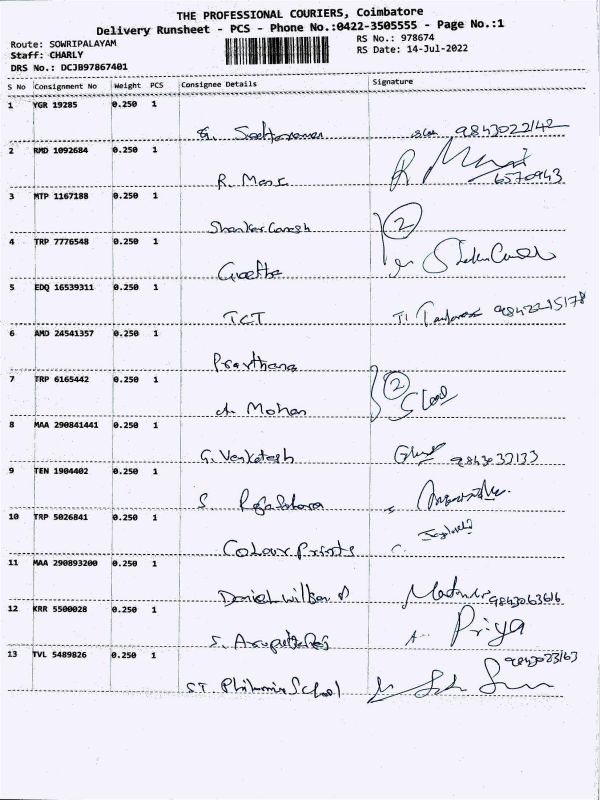 THE PROFESSIONAL COURIERS, Coimbatore
Delivery Runsheet - PCS - Phone No.:0422-3505555 - Page No.:1
Route: SOWRIPALAYAM
Staff: CHARLY
DRS No.: DCJB97867401
RS No.: 978674
RS Date: 14-Jul-2022
S No Consignment No Weight PCS Consignee Details Signature
1 YGR 19285 0.250 1
9843022142
2 RMD 1092684 0.250 1
R. Mani
6570943
3 MTP 1167188 0.250 1
Shankar Ganesh 2
4 TRP 7776548 0.250 1
Geetha
5 EDQ 16539311 0.250 1
TCT 9842215178
6 AMD 24541357 0.250 1
Prarthana
7 TRP 6165442 0.250 1
2
Mohan
8 MAA 290841441 0.250 1
G. Venkatesh 9843033133
9 TEN 1904402 0.250 1
S.
10 TRP 5026841 0.250 1
Colour Prints
11 MAA 290893200 0.250 1
Daniel Wilson 9843063616
12 KRR 5500028 0.250 1
S. Priya
13 TVL 5489826 0.250 1
9843023163
ST. School